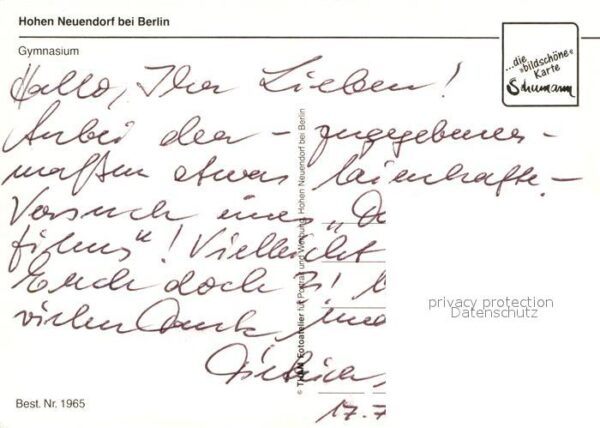 Hohen Neuendorf bei Berlin
Gymnasium
...die
»bildschöne«
Karte
Schumann
Hallo, Ihr Lieben!
Anbei der – zugegebener-
maßen etwas laienhafte –
Versuch eines „Do
films“! Vielleicht
Euch doch
vielen Dank, und
17.7
© Fotoatelier für Porträt und Werbung, Hohen Neuendorf bei Berlin
privacy protection
Datenschutz
Best. Nr. 1965